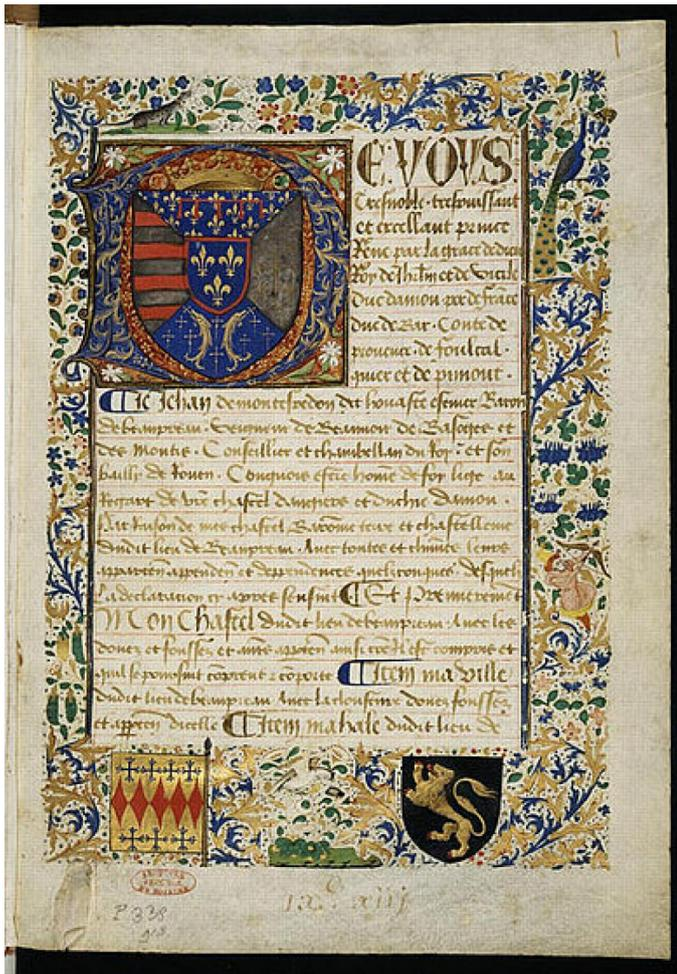 DE VOUS
Tresnoble trespuissant
et excellant prince
Rene par la grace de dieu
Roy de Jhrlm et de Sicile
duc danjou per de frāce
duc de Bar Conte de
provence de foulcal
quer et de pimont
Je Jehan de montespedon dit houaste escuier Baron
de beaupreau Seigneur de Beamon de Basoges et
des montis Conseillier et chambellan du Roy et son
bailly de Rouen Congnois estre homē de foy lige au
Regart de vrē chastel dangiers et duchie danjou
Par Raison de mes chastel Baronie terre et chastellenie
dudit lieu de Beaupreau Avec toutes et chūnes leurs
apparten appenden et deppendences quelconques desquelx
La declaration cy apres sensuit Et Premierement
Mon Chastel dudit lieu de beaupreau Avec les
douez et fossez et ainsi est compris et
qui se poursuit
Item ma ville
dudit lieu de beaupreau Avec la clousture douez fousses
et apparten dicelle Item ma hale dudit lieu de
P 338
xiij
1